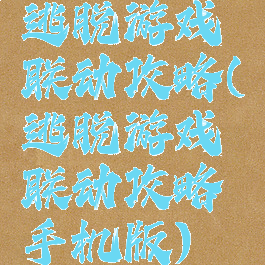 逃脱游戏
联动攻略(
逃脱游戏
联动攻略
手机版)